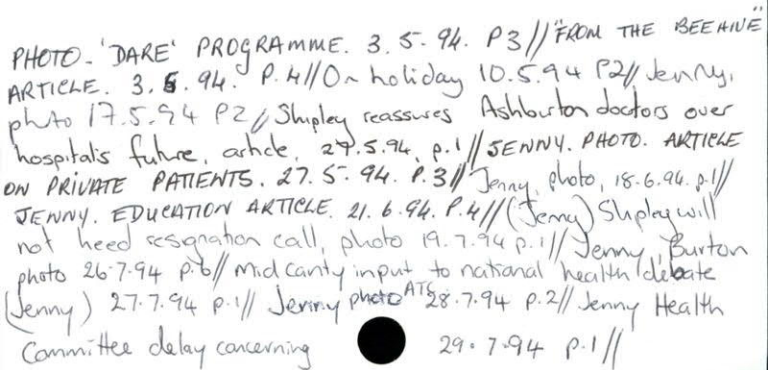 PHOTO - 'DARE' PROGRAMME. 3.5.94. P3// "FROM THE BEEHIVE"
ARTICLE. 3.5.94. P.4// On holiday 10.5.94 P2// Jenny,
photo 17.5.94 P2// Shipley reassures Ashburton doctors over
hospitals future, article, 27.5.94, p.1// JENNY. PHOTO. ARTICLE
ON PRIVATE PATIENTS. 27.5.94. P.3// Jenny, photo, 18.6.94. p.1//
JENNY. EDUCATION ARTICLE. 21.6.94. P.4// (Jenny) Shipley will
not heed resignation call, photo 19.7.94 p.1// Jenny, Burton
photo 26.7.94 p.6// Mid Canty input to national health debate
(Jenny) 27.7.94 p.1// Jenny photo ATC 28.7.94 p.2// Jenny Health
Committee delay concerning 29.7.94 p.1//